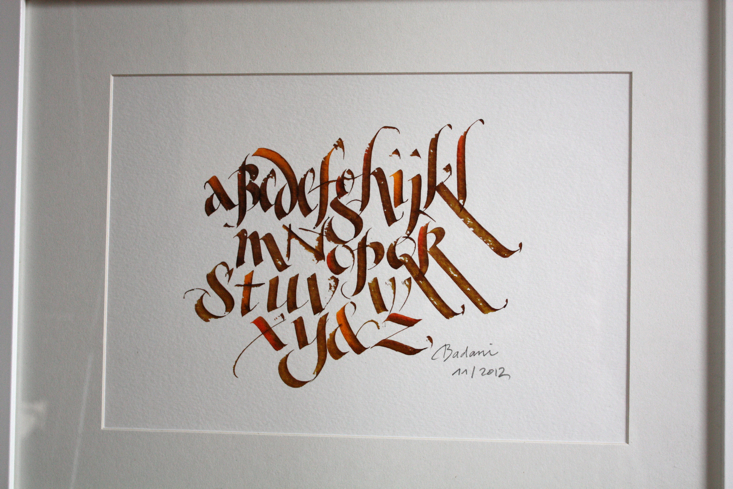 aBcdefghijkl
mNopQR
Stuvw
xy&z
Badani
11/2012